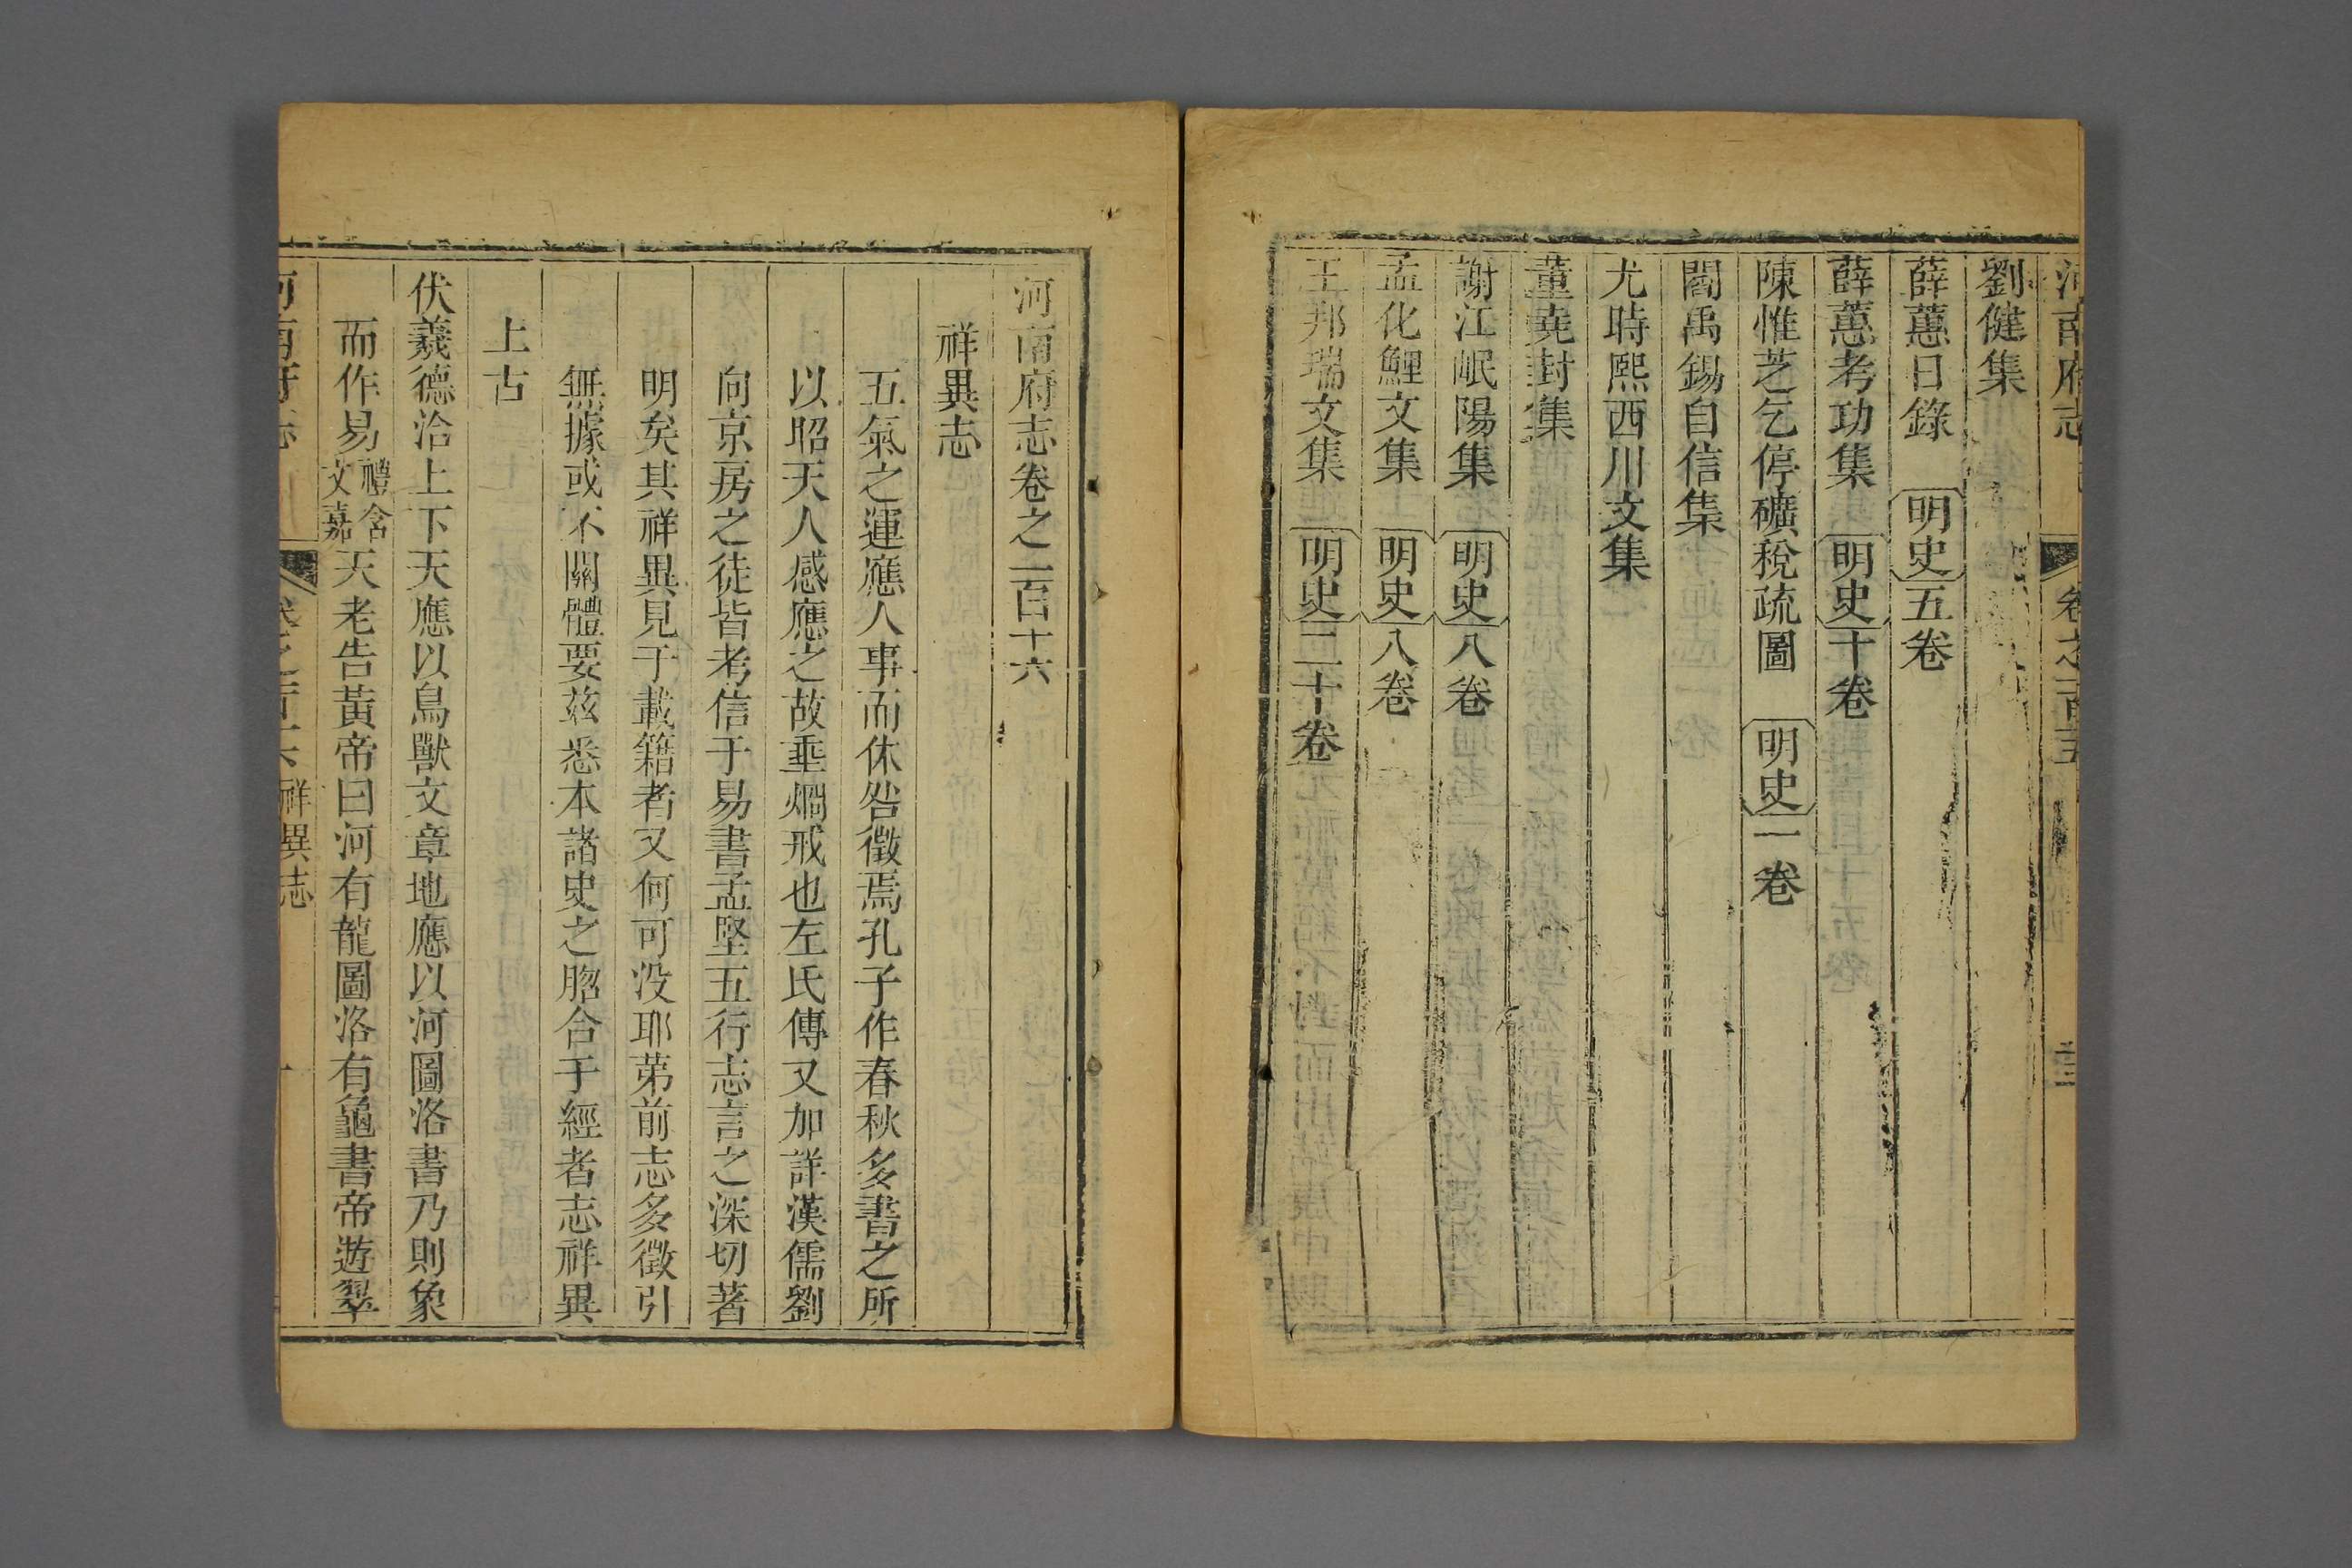 河南府志 卷之一百十五
劉健集
薛蕙日錄 明史五卷
薛蕙考功集 明史十卷
陳惟芝乞停礦稅疏圖 明史一卷
閻禹錫自信集
尤時熙西川文集
董堯封集
謝江岷陽集 明史八卷
孟化鯉文集 明史八卷
王邦瑞文集 明史二十卷
河南府志卷之一百十六
祥異志
五氣之運應人事而休咎徵焉孔子作春秋多書之所
以昭天人感應之故垂烱戒也左氏傳又加詳漢儒劉
向京房之徒皆考信于易書孟堅五行志言之深切著
明矣其祥異見于載籍者又何可没耶苐前志多徵引
無據或不關體要茲悉本諸史之脗合于經者志祥異
上古
伏羲德洽上下天應以鳥獸文章地應以河圖洛書乃則象
而作易禮含文嘉天老告黃帝曰河有龍圖洛有龜書帝遊翠
河南府志 卷之一百十六祥異志 一